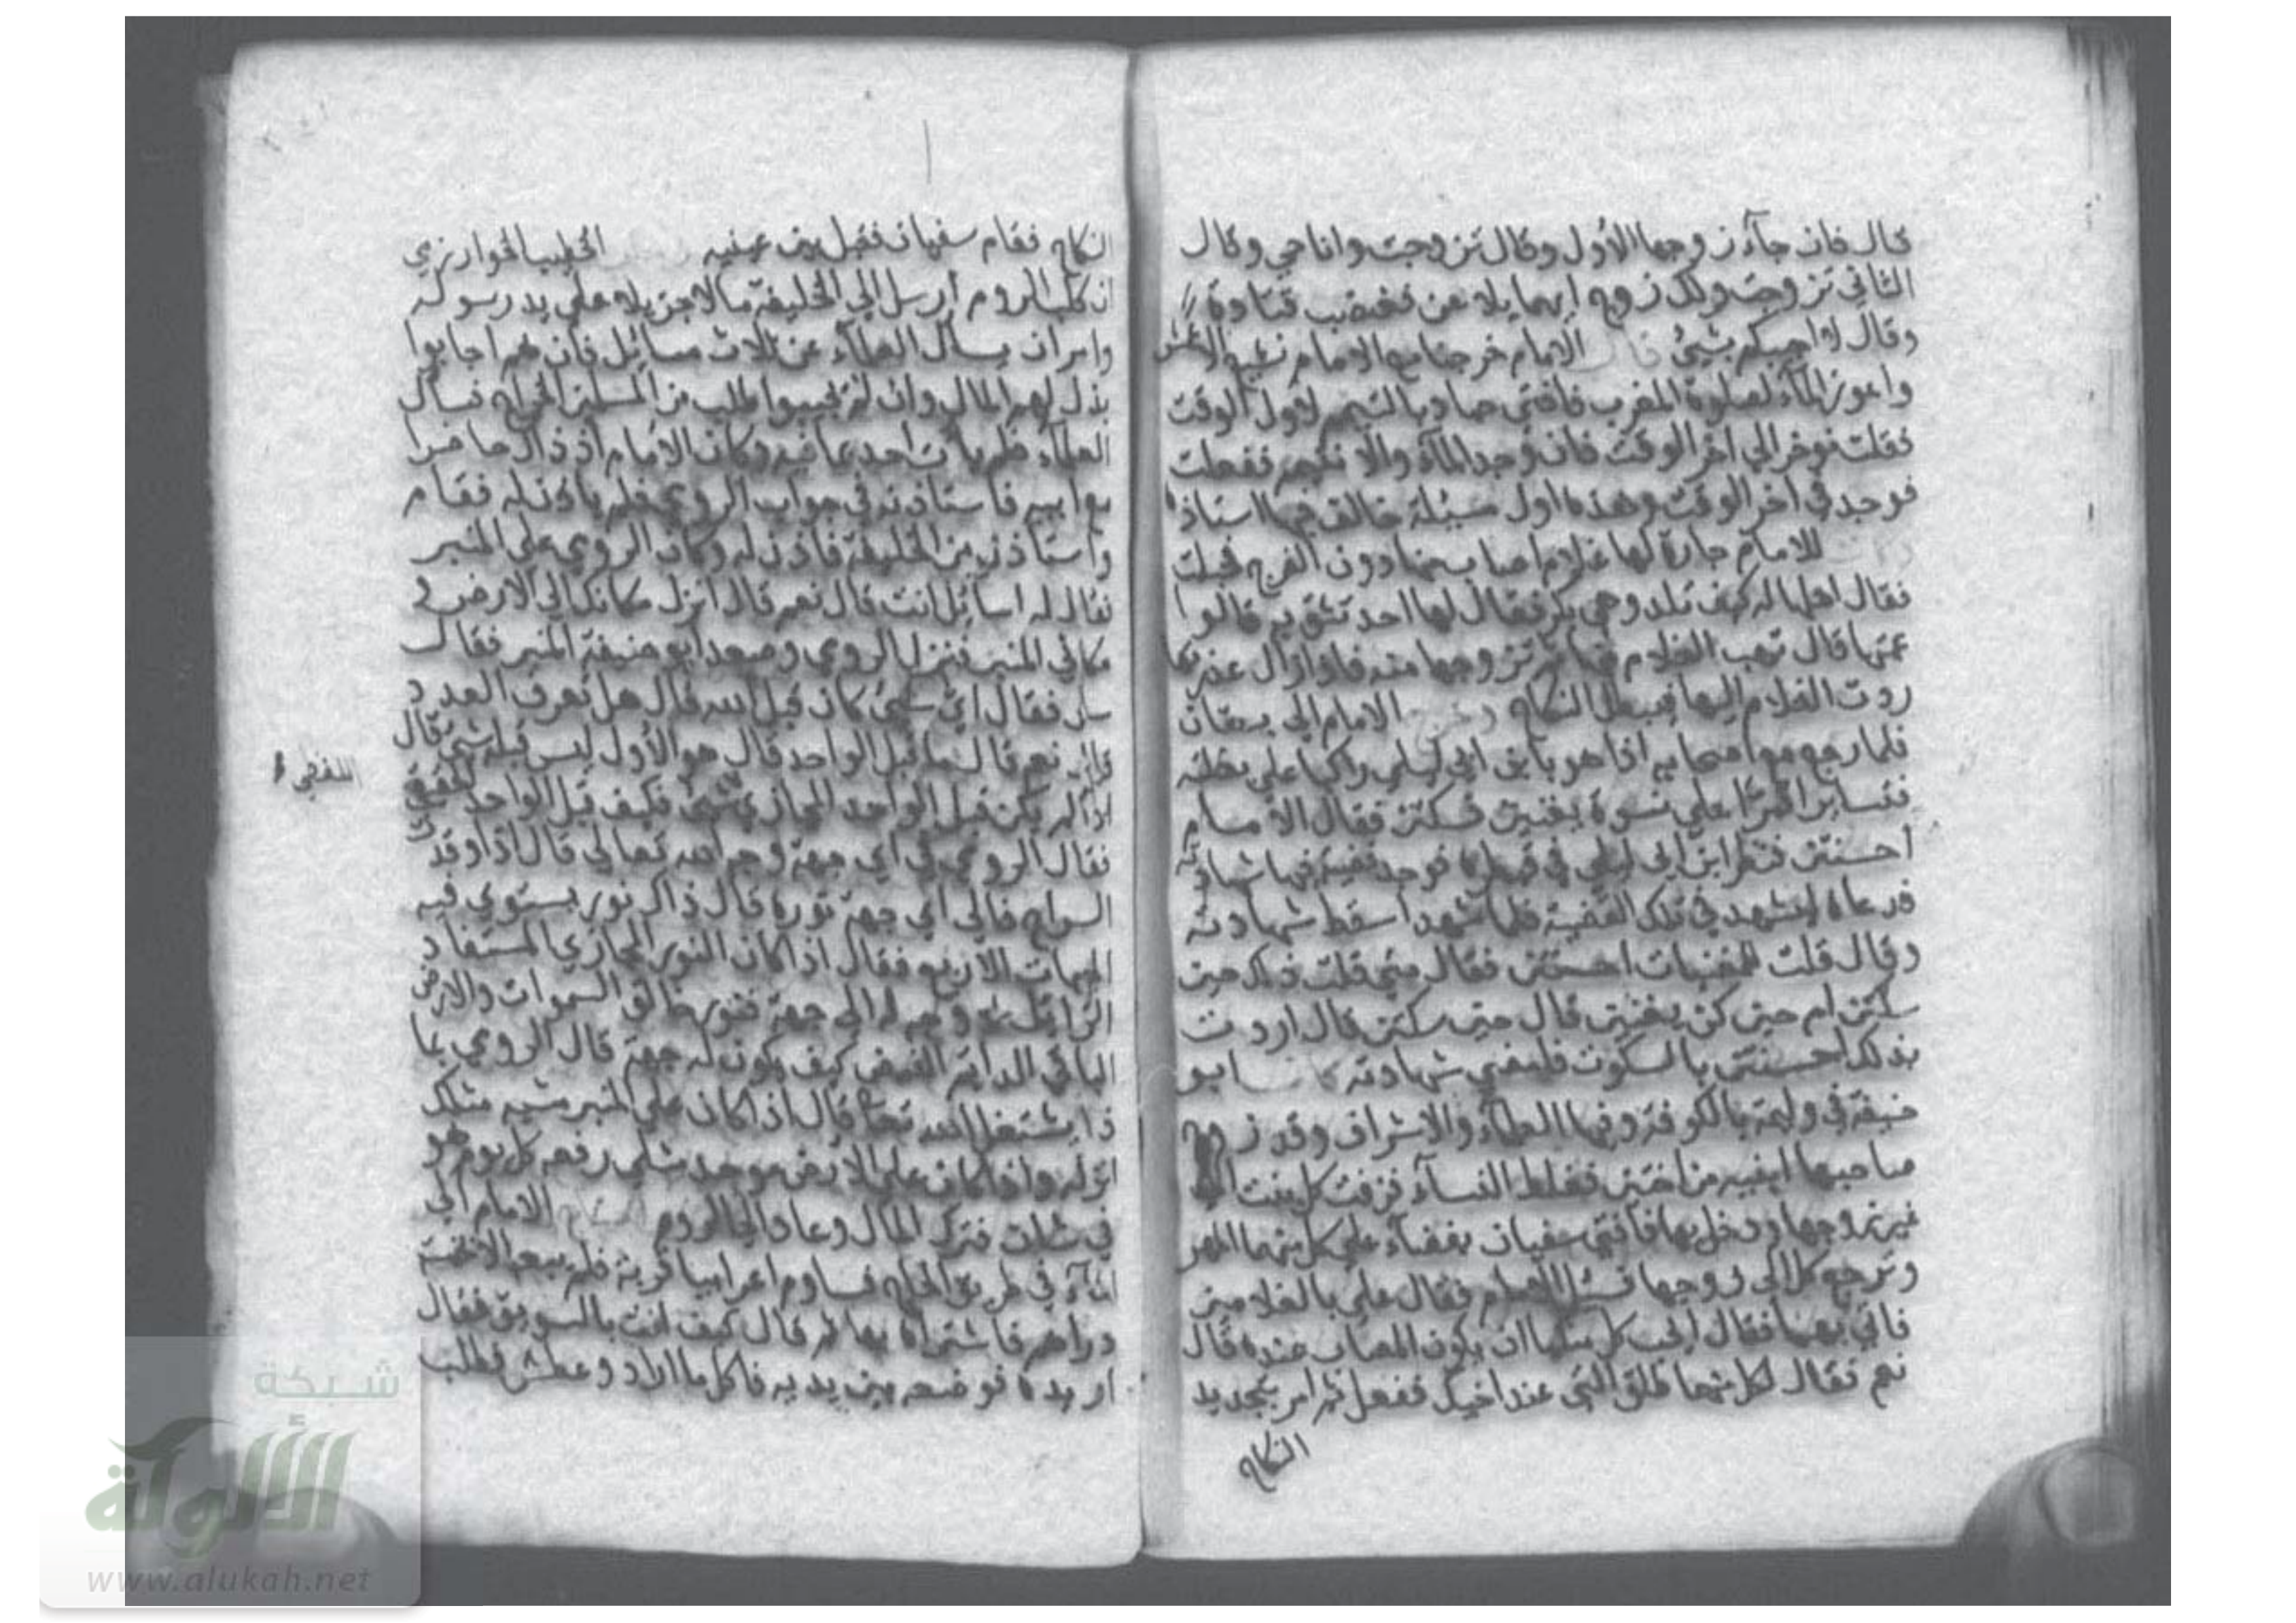 قال فان جآء زوجها الأول وقال تزوجت وانا حي وقال
الثاني تزوجت ولك زوج ايهما يلاعن فغضب قتادة
وقال لا اجيبكم بشئ قال الامام خرجنا مع الامام نشيع الاعمش
واعوز المآء لصلوة المغرب فافتى حماد بالتيمم لاول الوقت
فقلت نوخر الى اخر الوقت فان وجد المآء والا نتيمم ففعلت
فوجد في اخر الوقت وهذه اول مسئلة خالف فيها استاذه
للامام جارة لها غلام اصاب منها دون الفرج فحبلت
فقال اهلها له كيف تلد وهي بكر فقال لها احد تثق به قالوا
عمتها قال تهب الغلام منها ثم تزوجها منه فاذا ازال عذرتها
ردت الغلام اليها فيبطل النكاح وخرج الامام الى بستان
فلما رجع مع اصحابه اذا هو بابن ابي ليلى راكبا على بغلته
فتسايرا فمرا على نسوة يغنين فسكتن فقال الامام
احسنتن فنظر ابن ابي ليلى في قمطره فوجد قضية فيها شهادته
فدعاه ليشهد في تلك القضية فلما شهد اسقط شهادته
وقال قلت للمغنيات احسنتن فقال متى قلت ذلك حين
سكتن ام حين كن يغنين قال حين سكتن قال اردت
بذلك احسنتن بالسكوت فامضي شهادته كان ابو
حنيفة في وليمة بالكوفة وفيها العلمآء والاشراف وقد زوج
صاحبها ابنيه من اختين فغلط النسآء فزفت كل بنت الى
غير زوجها ودخل بها فافتى سفيان بقضآء على كل منهما المهر
وترجع كل الى زوجها فسئل الامام فقال علي بالغلامين
فاتي بهما فقال ايحب كل منكما ان يكون المصاب عنده قال
نعم فقال لكل منهما طلق التي عند اخيك ففعل ثم امر بتجديد
النكاح
النكاح فقام سفيان فقبل بين عينيه الخطيب الخوارزمي
ان كلب الروم ارسل الى الخليفة مالا جزيلا على يد رسوله
وامر ان يسال العلمآء عن ثلاث مسائل فان هم اجابوا
بذل لهم المال وان لم يجيبوا طلب من المسلمين الخراج فسال
العلمآء فلم يات احد بما فيه وكان الامام اذ ذاك حاضرا
مع ابيه فاستاذنه في جواب الرومي فلم ياذن له فقام
واستاذن من الخليفة فاذن له وكان الرومي على المنبر
فقال له اسائل انت قال نعم قال انزل مكانك الى الارض و
مكاني المنبر فنزل الرومي وصعد ابو حنيفة المنبر فقال
سل فقال اي شئ كان قبل الله قال هل تعرف العدد
قال نعم قال ما قبل الواحد قال هو الأول ليس قبله شئ قال
اذا لم يكن قبل الواحد المجازي شئ فكيف قبل الواحد الحقيقي
اللفظي
فقال الرومي في اي جهة وجه الله تعالى قال اذا اوقدت
السراج فالى اي جهة نوره قال ذاك نور يستوي فيه
الجهات الاربع فقال اذا كان النور المجازي المستفاد
الزائل لا وجه له الى جهة فنور خالق السموات والارض
الباقي الدائم الفيض كيف يكون له جهة قال الرومي بما
ذا يشتغل الله تعالى قال اذا كان على المنبر مشبه مثلك
انزله واذا كان على الارض موحد مثلي رفعه كل يوم هو
في شان فترك المال وعاد الى الروم احتاج الامام الى
المآء في طريق الحاج فساوم اعرابيا قربة فلم يبعه الا بخمسة
دراهم فاشتراه بها ثم قال كيف انت بالسويق فقال
اريده فوضعه بين يديه فاكل ما اراد وعطش فطلب
شبكة
الألوكة
www.alukah.net